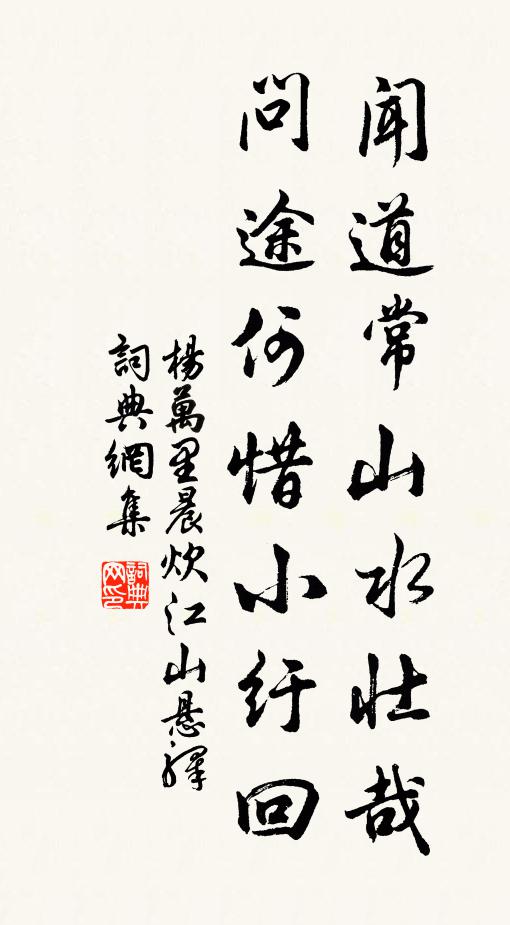 闻道常山水壮哉
问途何惜小纡回
楊萬里晨炊江山悬驛
詞典網集
詞典网印